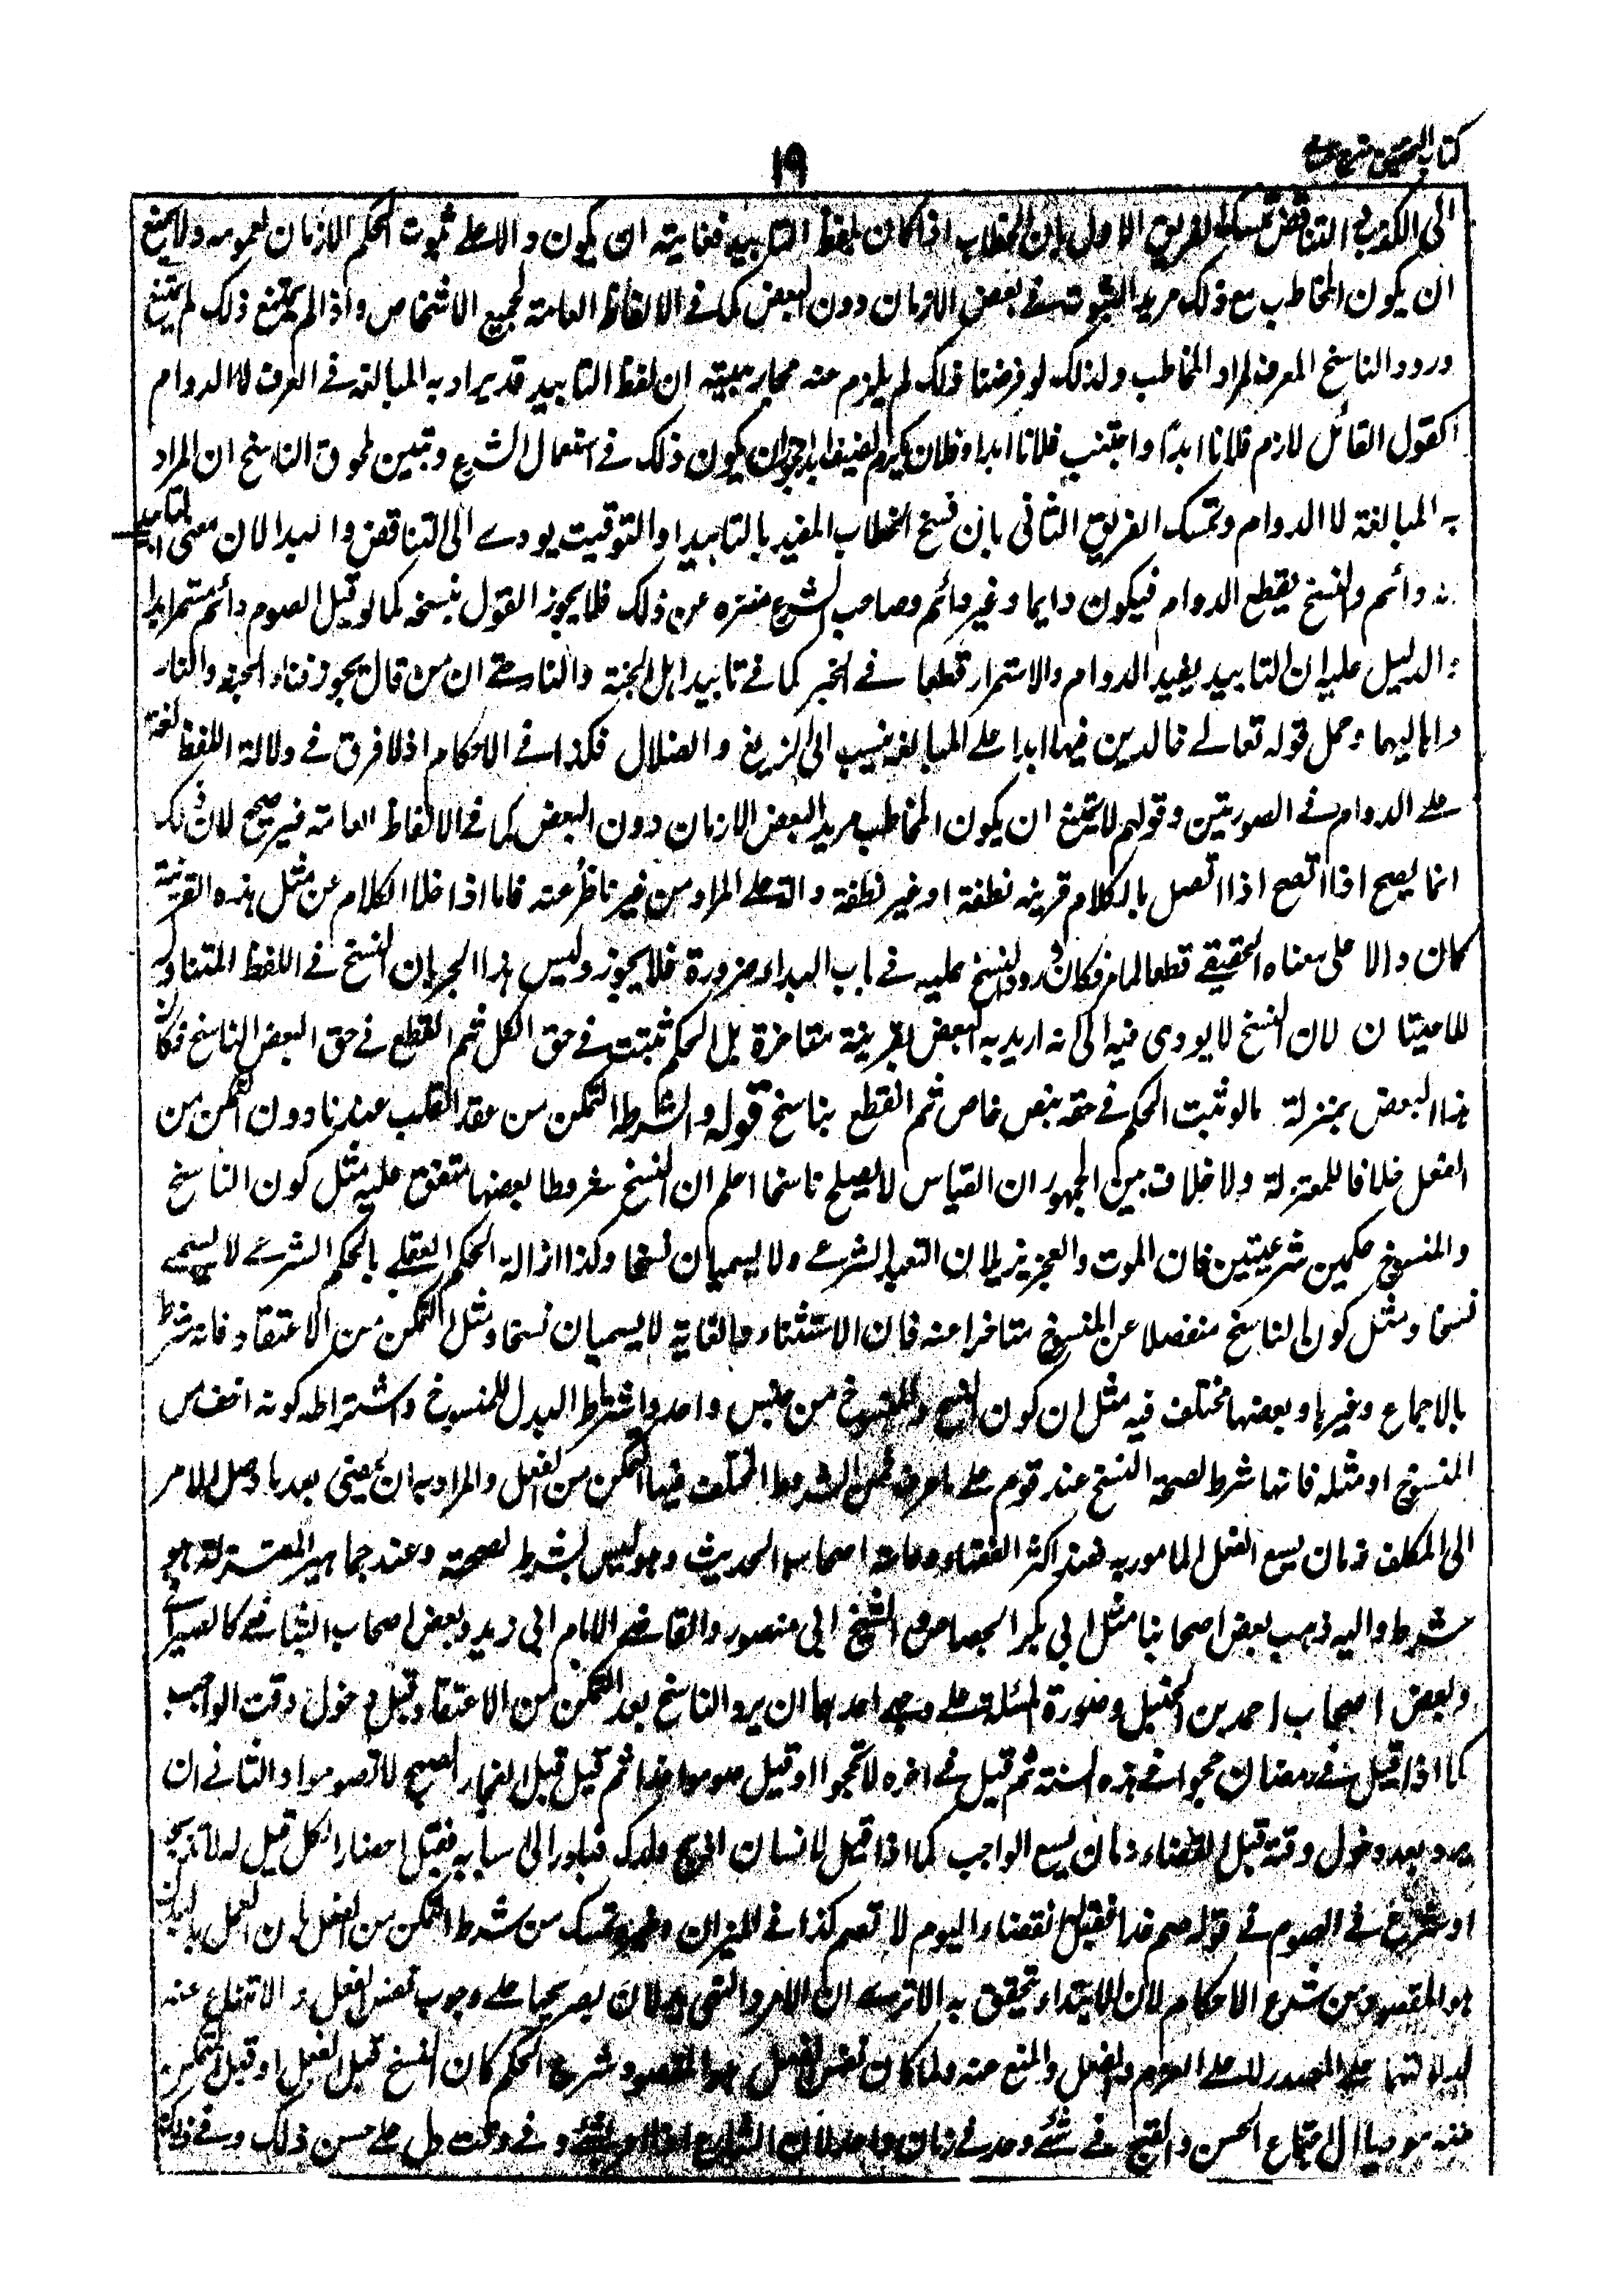 ١٩
الى الكذب والتناقض تمسك الفريق الاول بان الخطاب اذا كان بلفظ التابيد فغايته ان يكون دالا على ثبوت الحكم الازمان لعمومه ولا يمتنع
ان يكون المخاطب مع ذلك مريدا لثبوته فى بعض الازمان دون البعض كما فى الالفاظ العامة لجميع الاشخاص واذا لم يمتنع ذلك لم يمتنع
ورود الناسخ المعرف لمراد المخاطب ولذلك لو فرضنا ذلك لم يلزم عنه محال يبينه ان لفظ التابيد قد يراد به المبالغة فى العرف لا الدوام
كقول القائل لازم فلانا ابدا واجتنب فلانا ابدا وفلان يكرم الضيف ابدا جاز ان يكون ذلك فى استعمال الشرع وتبين لحوق الناسخ ان المراد
به المبالغة لا الدوام وتمسك الفريق الثانى بان نسخ الخطاب المقيد بالتابيد او التوقيت يودى الى التناقض والبدا لان معنى التابيد
انه دائم والنسخ يقطع الدوام فيكون دايما وغير دائم وصاحب الشرع منزه عن ذلك فلا يجوز القول بنسخه كما لو قيل الصوم دائم مستمر ابدا
والدليل عليه ان التابيد يفيد الدوام والاستمرار قطعا فى الخبر كما فى تابيد اهل الجنة والنار حتى ان من قال يجوز فناء الجنة والنار
واهاليهما وحمل قوله تعالى خالدين فيها ابدا على المبالغة ينسب الى الزيغ والضلال فكذا فى الاحكام اذ لا فرق فى دلالة اللفظ لغة
على الدوام فى الصورتين وقولهم لا يمتنع ان يكون المخاطب مريدا لبعض الازمان دون البعض كما فى الالفاظ العامة غير صحيح لان ذلك
انما يصح اذا اتصل بالكلام قرينة نطقة او غير نطقة دالة على المراد من غير تاخر عنه فاما اذا خلا الكلام عن مثل هذه القرينة
كان دالا على معناه الحقيقى قطعا لما مر فكان ورود النسخ عليه فى باب البداء ضرورة فلا يجوز وليس هذا الجريان النسخ فى اللفظ المتناول
للاعيان لان النسخ لا يودى فيه الى انه اريد به البعض بقرينة متاخرة بل الحكم ثبت فى حق الكل ثم انقطع فى حق البعض الناسخ فكان
هذا البعض بمنزلة مالو ثبت الحكم فى حقه بنص خاص ثم انقطع بناسخ قوله والشرط التمكن من عقد القلب عندنا دون التمكن من
الفعل خلافا للمعتزلة ولا خلاف بين الجمهور ان القياس لا يصلح ناسخا اعلم ان للنسخ شروطا بعضها متفق عليه مثل كون الناسخ
والمنسوخ حكمين شرعيتين فان الموت والعجز يزيلان التعبد الشرعى ولا يسميان نسخا وكذا ازالة الحكم العقلى بالحكم الشرعى لا يسمى
نسخا ومثل كون الناسخ منفصلا عن المنسوخ متاخرا عنه فان الاستثناء والغاية لا يسميان نسخا ومثل التمكن من الاعتقاد فانه شرط
بالاجماع وغيرها وبعضها مختلف فيه مثل ان كون الناسخ والمنسوخ من جنس واحد واشتراط البدل للمنسوخ واشتراطه كونه اخف من
المنسوخ او مثله فانها شرط لصحة النسخ عند قوم على ما عرف فمن الشروط المختلف فيها التمكن من الفعل والمراد به ان يمضى بعد ما وصل الامر
الى المكلف زمان يسع الفعل المامور به فعند اكثر الفقهاء وعامة اصحاب الحديث وهو ليس بشرط لصحته وعند جماهير المعتزلة هو
شرط واليه ذهب بعض اصحابنا مثل ابى بكر الجصاص والشيخ ابى منصور والقاضى الامام ابى زيد وبعض اصحاب الشافعى كالصيرفى
وبعض اصحاب احمد بن الحنبل وصورة المسئلة على وجهين احدهما ان يرد الناسخ بعد التمكن من الاعتقاد وقبل دخول وقت الواجب
كما اذا قيل فى رمضان حجوا فى هذه السنة ثم قيل فى اخره لا تحجوا او قيل صوموا غدا ثم قيل قبل انفجار الصبح لا تصوموا والثانى ان
يرد بعد دخول وقته قبل انقضاء زمان يسع الواجب كما اذا قيل لانسان اذبح ولدك فبادر الى اسبابه فقبل احضار الكل قيل له لا تذبح
او شرع فى الصوم فى قوله صم غدا فقبل انقضاء اليوم لا تصم كذا فى الميزان وغيره وتمسك من شرط التمكن من الفعل بان العمل بالبدن
هو المقصود من شرع الاحكام لان الابتداء يتحقق به الا ترى ان الامر والنهى يدلان بصريحها على وجوب نفس الفعل والامتناع عنه
لدلالتهما على المصدر لا على العزم والفعل والمنع عنه ولما كان نفس الفعل هو المقصود شرع الحكم كان النسخ قبل الفعل او قبل التمكن
منه موديا الى اجتماع الحسن والقبح فى شئ واحد فى زمان واحد لان الشارع اذا امر بشئ فى وقت دل على حسن ذلك وفى ذلك